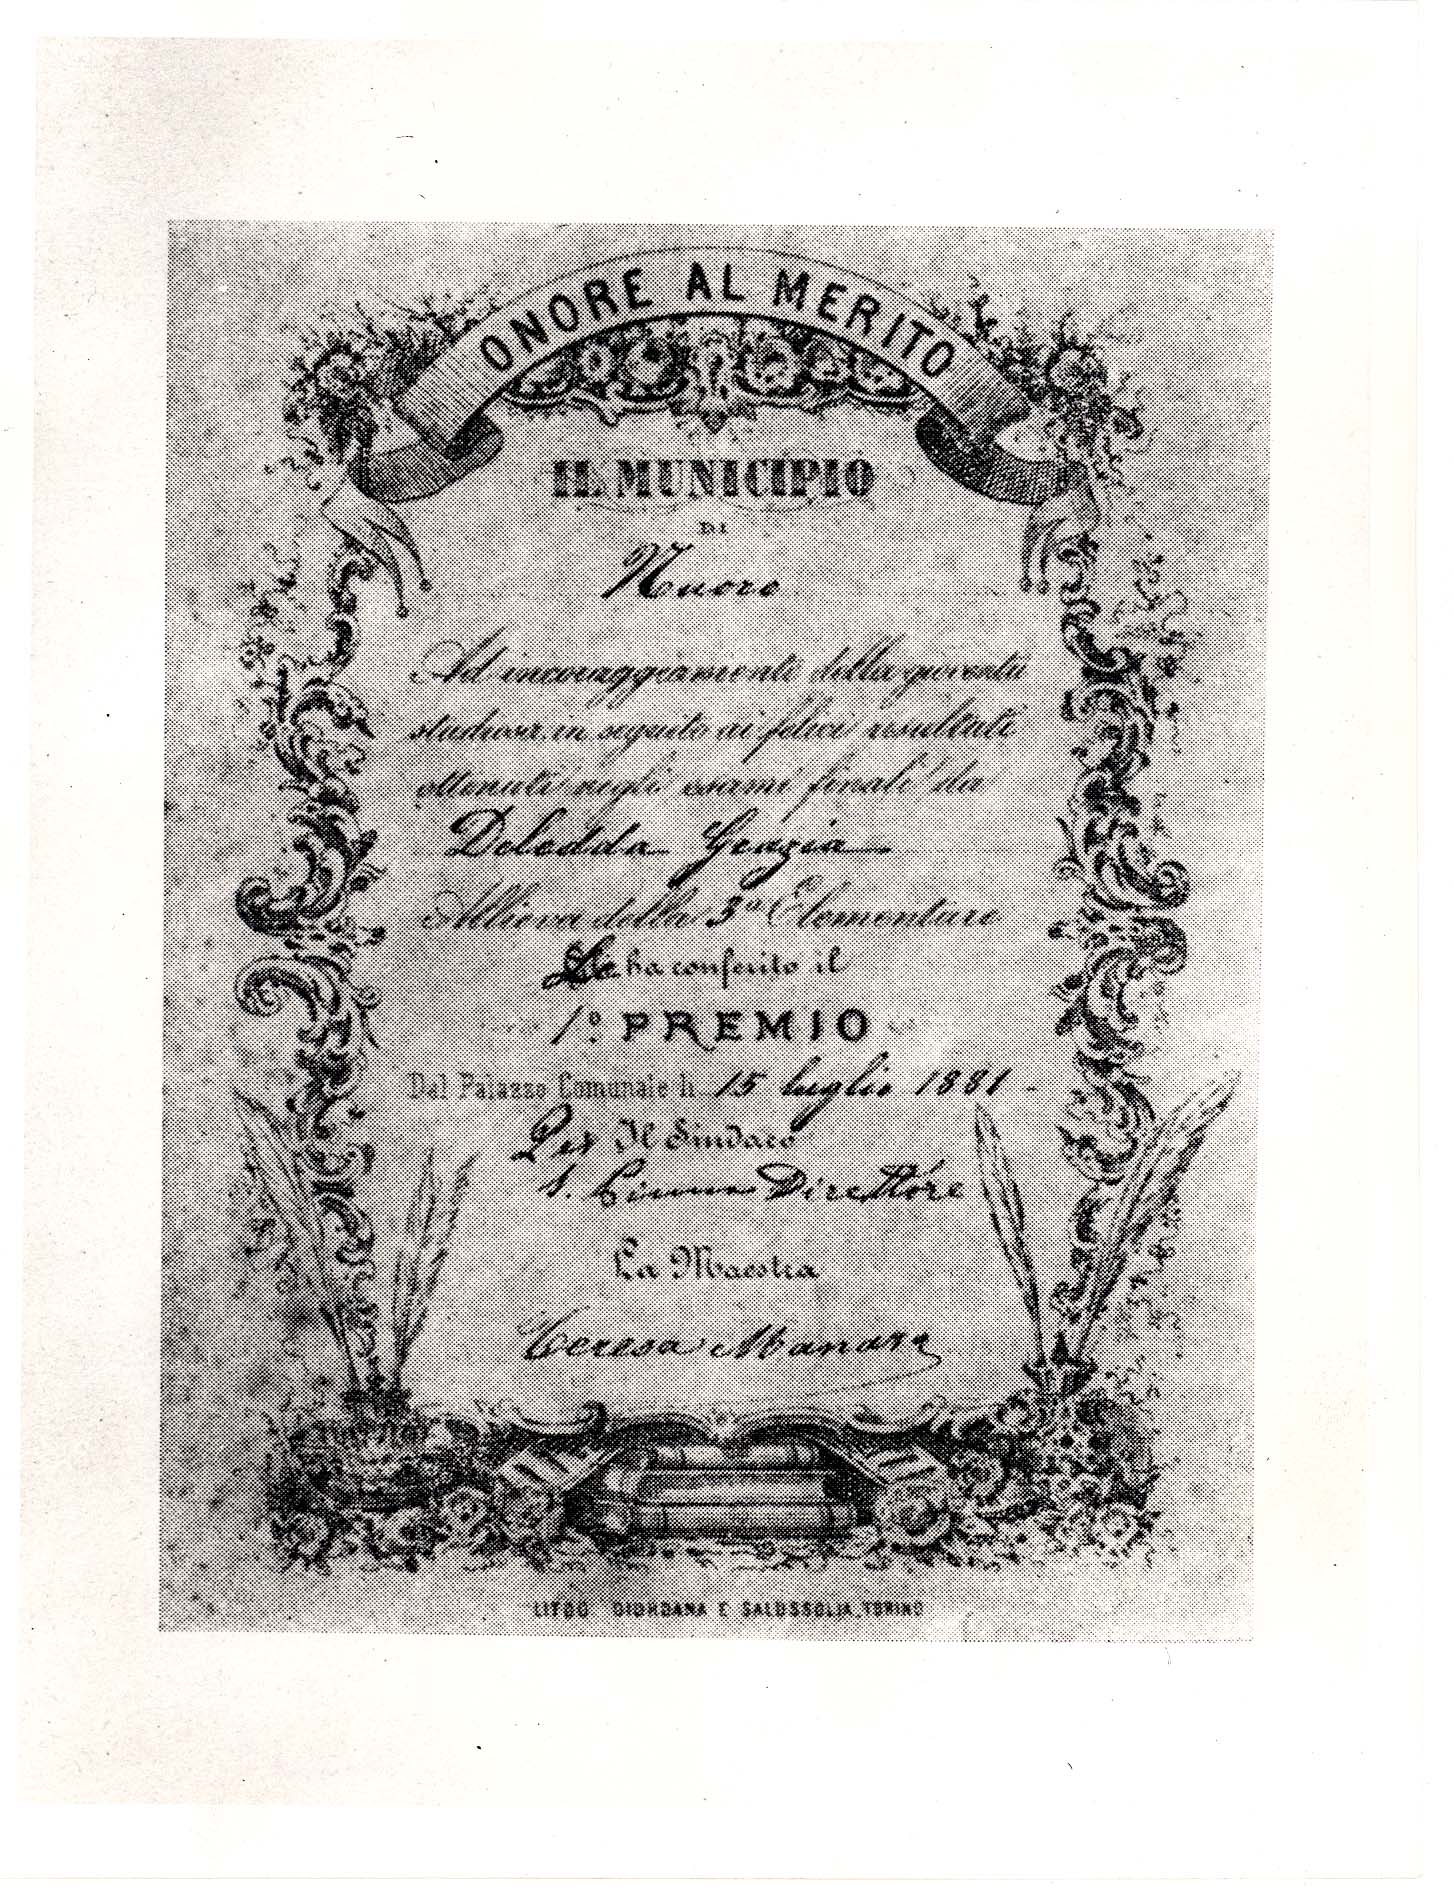 ONORE AL MERITO
IL MUNICIPIO
DI
Nuoro
Ad incoraggiamento della gioventù
studiosa, in seguito ai felici resultati
ottenuti negli esami finali da
Deledda Grazia
Allieva della 3ª Elementare
Le ha conferito il
1º PREMIO
Dal Palazzo Comunale li 15 luglio 1881
Per Il Sindaco
Direttore
La Maestra
Teresa
LITOG. GIORDANA E SALUSSOLIA, TORINO